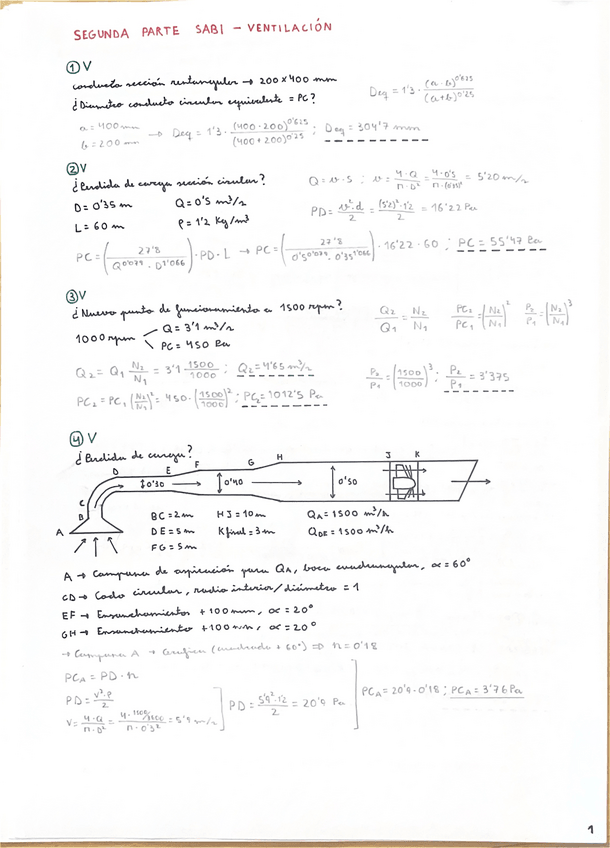 SEGUNDA PARTE SABI - VENTILACIÓN
① V
conducto sección rectangular → 200 x 400 mm
¿Diametro conducto circular equivalente = PC?
Deq = 1'3 · (a · b)^0'625 / (a+b)^0'25
a = 400 mm
b = 200 mm → Deq = 1'3 · (400 · 200)^0'625 / (400 + 200)^0'25 ; Deq = 304'7 mm
② V
¿Perdida de carga sección circular?
D = 0'35 m Q = 0'5 m³/s
L = 60 m ρ = 1'2 Kg/m³
Q = v · S ; v = 4 · Q / π · D² = 4 · 0'5 / π · (0'35)² = 5'20 m/s
PD = v² · d / 2 = (5'2)² · 1'2 / 2 = 16'22 Pa
PC = (27'8 / Q^0'079 · D^1'066) · PD · L → PC = (27'8 / 0'5^0'079 · 0'35^1'066) · 16'22 · 60 ; PC = 55'47 Pa
③ V
¿Nuevo punto de funcionamiento a 1500 rpm?
1000 rpm Q = 3'1 m³/s
PC = 450 Pa
Q₂/Q₁ = N₂/N₁ PC₂/PC₁ = (N₂/N₁)² P₂/P₁ = (N₂/N₁)³
Q₂ = Q₁ N₂/N₁ = 3'1 1500/1000 ; Q₂ = 4'65 m³/s
PC₂ = PC₁ (N₂/N₁)² = 450 · (1500/1000)² ; PC₂ = 1012'5 Pa
P₂/P₁ = (1500/1000)³ ; P₂/P₁ = 3'375
④ V
¿Perdida de carga?
A B C D E F G H J K
0'30 0'40 0'50
BC = 2 m HJ = 10 m QA = 1500 m³/h
DE = 5 m K final = 3 m QDE = 1500 m³/h
FG = 5 m
A → Campana de aspiración para QA, boca cuadrangular, α = 60°
CD → Codo circular, radio interior/diámetro = 1
EF → Ensanchamientos + 100 mm, α = 20°
GH → Ensanchamiento + 100 mm, α = 20°
→ Campana A → Grafica (cuadrado + 60°) ⇒ n = 0'18
PCA = PD · n
PD = v² · ρ / 2
V = 4 · Q / π · D² = / π · 0'3² = 5'9 m/s
PD = 5'9² · 1'2 / 2 = 20'9 Pa
PCA = 20'9 · 0'18 ; PCA = 3'76 Pa
1